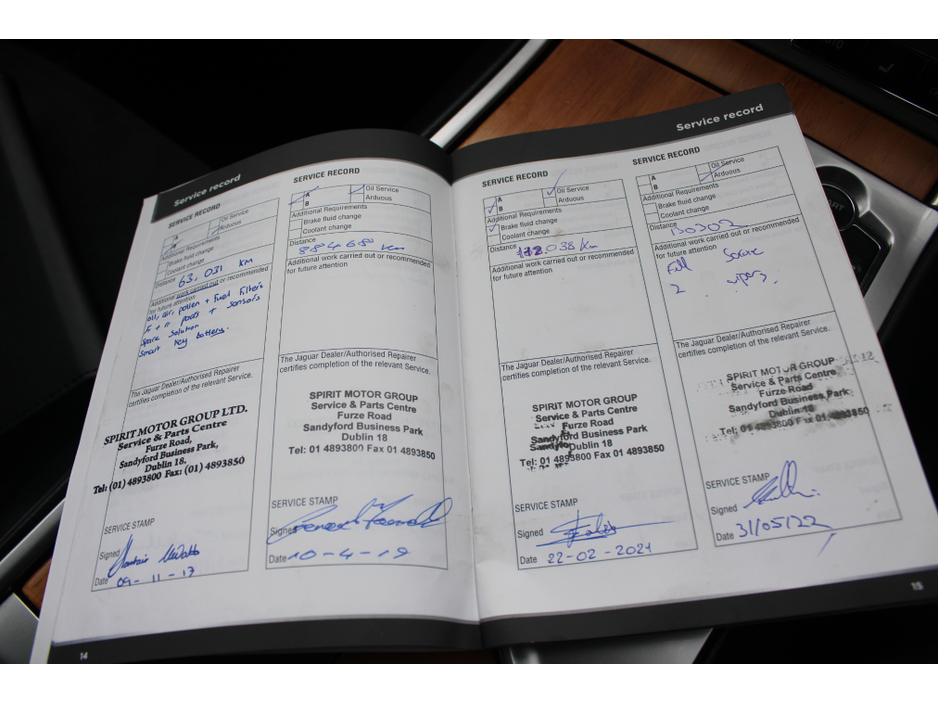 Service record
SERVICE RECORD
A
B
Oil Service
Arduous
Additional Requirements
Brake fluid change
Coolant change
Distance 63,031 KM
Additional work carried out or recommended
for future attention
oil, air, pollen + Fuel Filters
F + r pads + sensors
Spare Solution
Smart Key battery.
The Jaguar Dealer/Authorised Repairer
certifies completion of the relevant Service.
SPIRIT MOTOR GROUP LTD.
Service & Parts Centre
Furze Road,
Sandyford Business Park,
Dublin 18.
Tel: (01) 4893800 Fax: (01) 4893850
SERVICE STAMP
Signed
Date 09-11-17
14
SERVICE RECORD
A
B
Oil Service
Arduous
Additional Requirements
Brake fluid change
Coolant change
Distance
88468 Km
Additional work carried out or recommended
for future attention
The Jaguar Dealer/Authorised Repairer
certifies completion of the relevant Service.
SPIRIT MOTOR GROUP
Service & Parts Centre
Furze Road
Sandyford Business Park
Dublin 18
Tel: 01 4893800 Fax 01 4893850
SERVICE STAMP
Signed
Date 10-4-19
Service record
SERVICE RECORD
A
B
Oil Service
Arduous
Additional Requirements
Brake fluid change
Coolant change
Distance 112,038 Km
Additional work carried out or recommended
for future attention
The Jaguar Dealer/Authorised Repairer
certifies completion of the relevant Service.
SPIRIT MOTOR GROUP
Service & Parts Centre
Furze Road
Sandyford Business Park
Dublin 18
Tel: 01 4893800 Fax 01 4893850
SERVICE STAMP
Signed
Date 22-02-2021
SERVICE RECORD
A
B
Oil Service
Arduous
Additional Requirements
Brake fluid change
Coolant change
Distance 130302
Additional work carried out or recommended
for future attention
Full Service
2 wipers.
The Jaguar Dealer/Authorised Repairer
certifies completion of the relevant Service.
SPIRIT MOTOR GROUP
Service & Parts Centre
Furze Road
Sandyford Business Park
Dublin 18
Tel: 01 4893800 Fax 01 4893850
SERVICE STAMP
Signed
Date 31/05/22
15